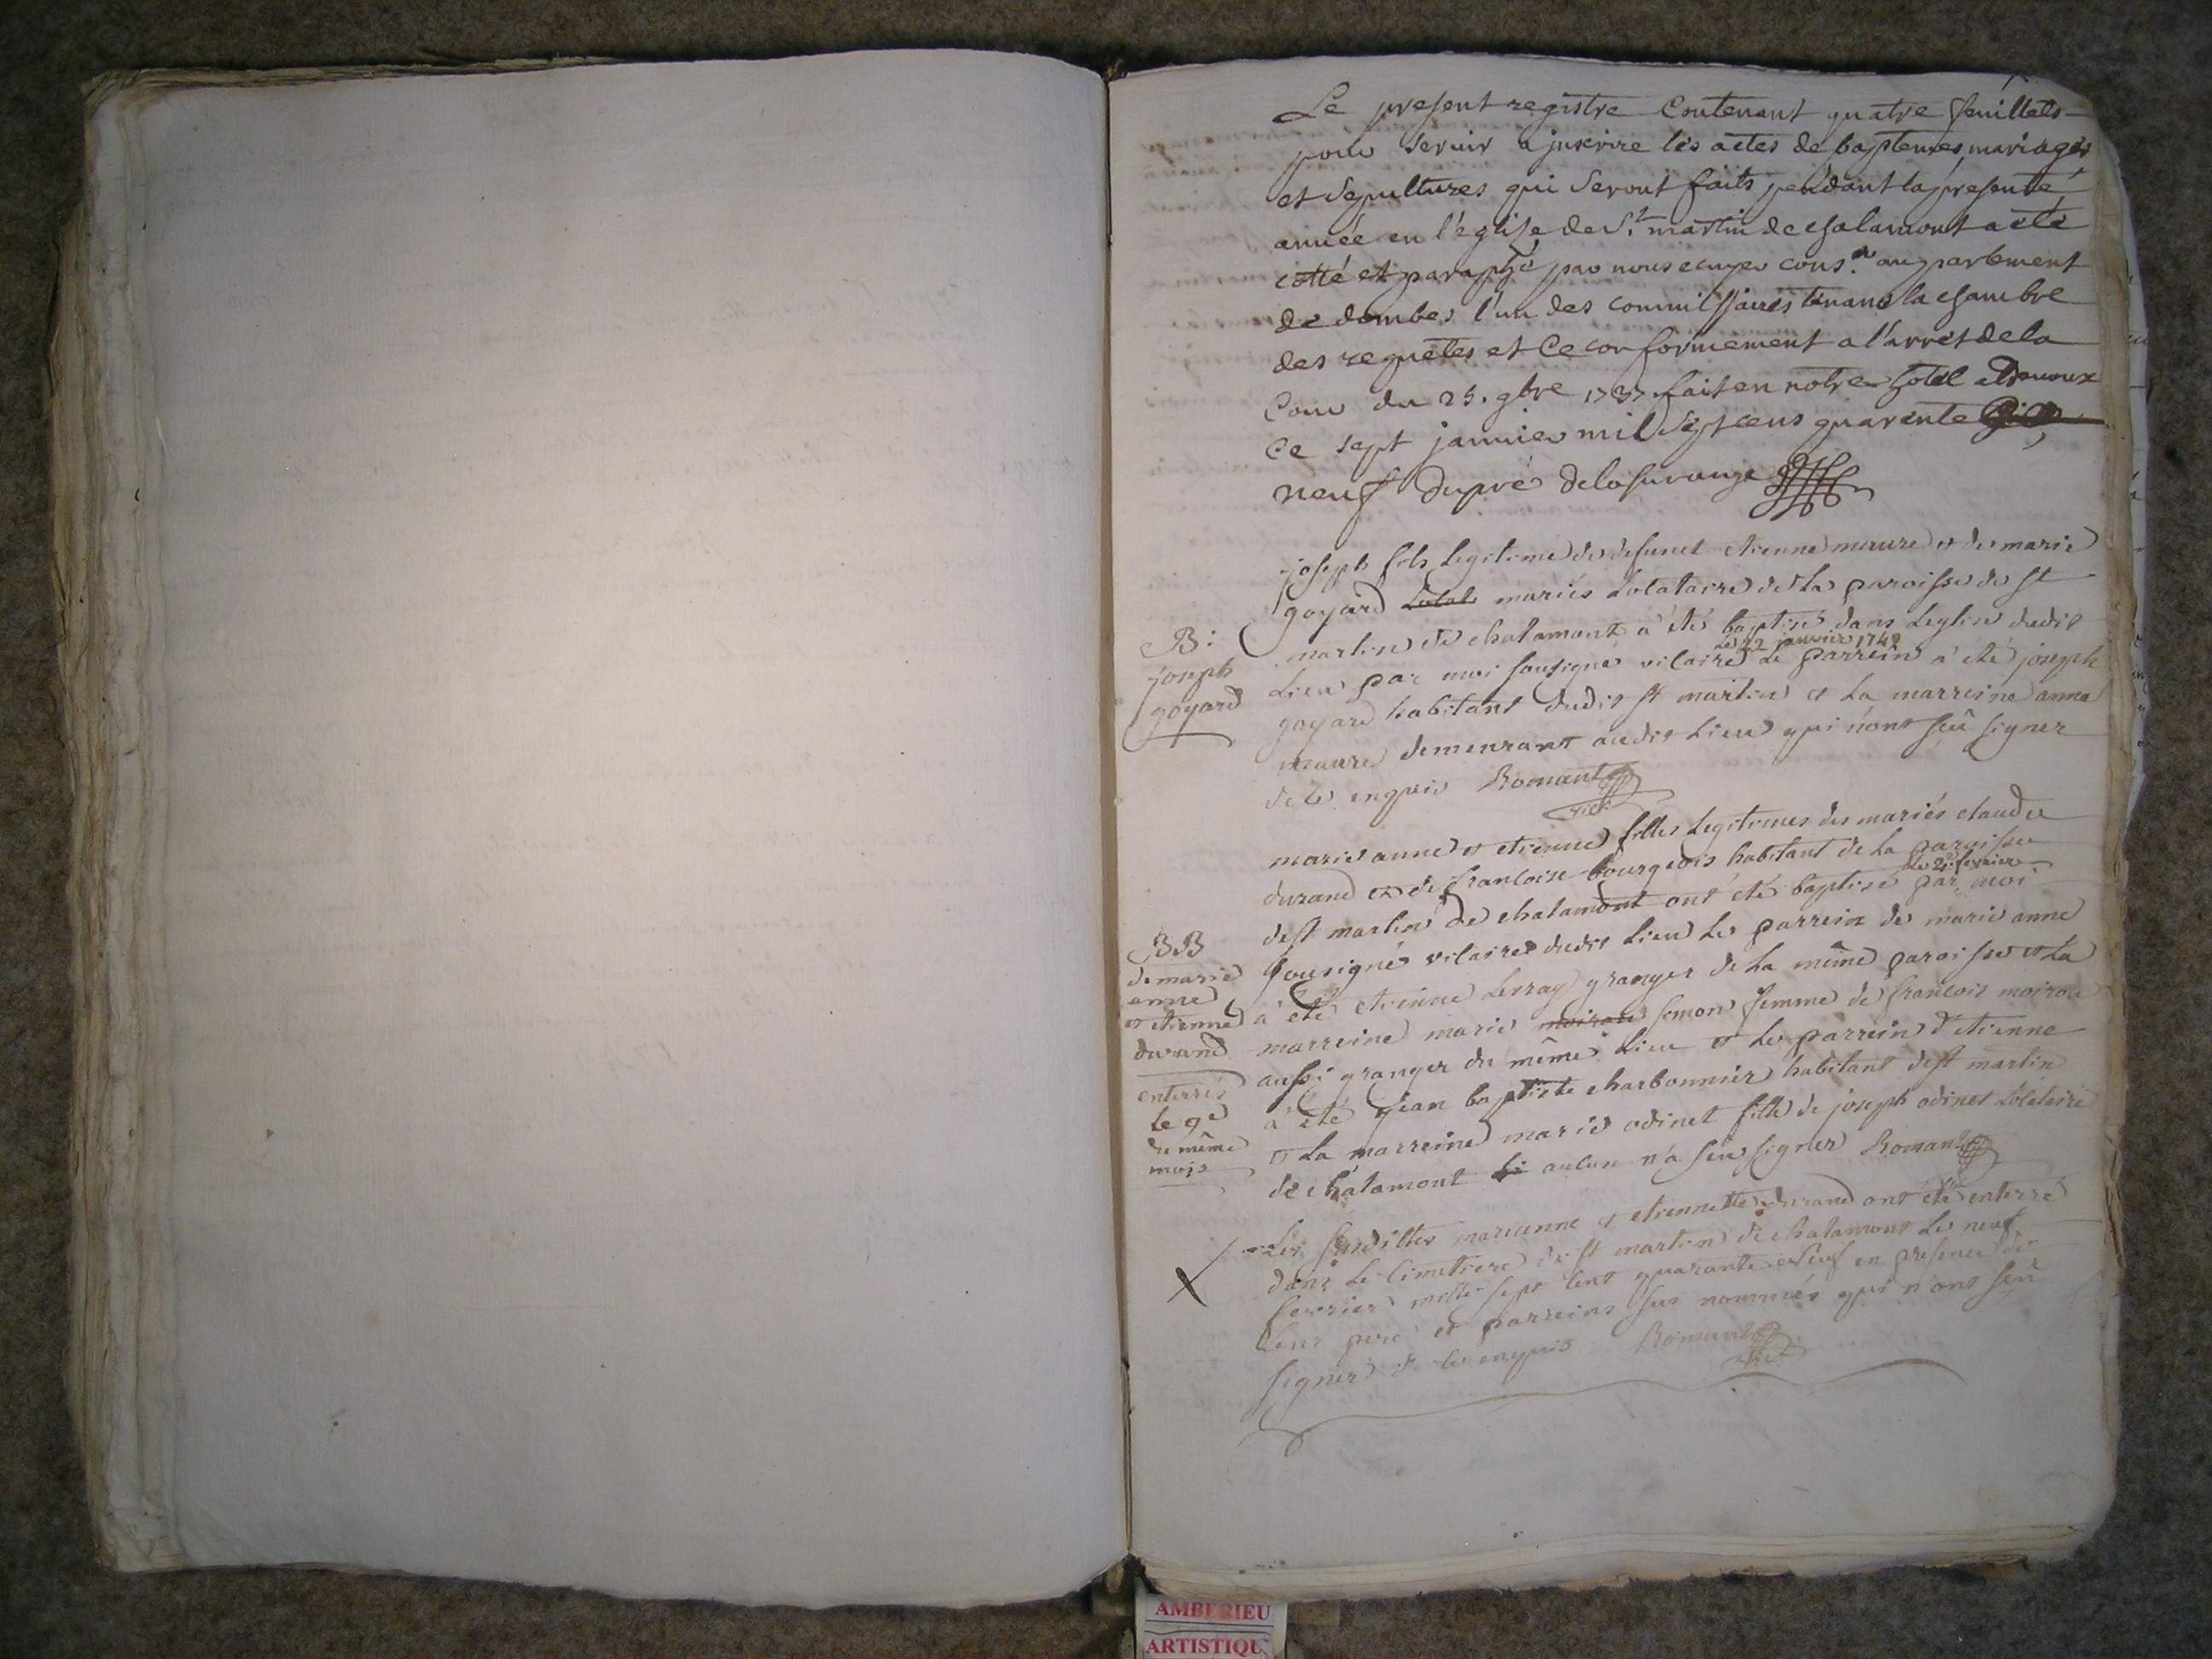 Le present registre Contenant quatre feuillets
pour servir a jnscrire les actes de baptemes, mariages
et sepultures qui seront faits pendant la presente
année en l'église de St. martin de chalamont a eté
cotté et paraphé par nous ecuyer cons.er au parlement
de dombes l'un des commissaires tenans la chambre
des requêtes et Ce conformement a l'arrêt de la
Cour du 25. 9bre 1737 fait en notre hotel a trevoux
Ce sept janvier mil sept cens quarente
neuf dupré
joseph fils legitime de defunct etienne meure et de marie
goyard Lotat mariés Lotataire de la paroisse de st
martin de chalamont a été baptisé dans leglise dudit
le 22 janvier 1749
Lieu par moi sousigné vicaire Le parrein a été joseph
goyard habitant dudit st martin et La marreine anna
meure demeurant audit Lieu qui n'ont sçû signer
de ce enquis Romant
vic.
B:
joseph
goyard
marie anne et etienne filles Legitimes des mariés claude
durand et de francoise bourgeois habitant de la paroisse
le 2e. fevrier
de st martin de chalamont ont été baptisé par moi
sousigné vicaire dudit Lieu Le parrein de marie anne
a été etienne Lerray granger de la même paroisse et La
marreine marie moiroud simon femme de francois moiroud
aussi granger du même Lieu et Le parrein d'etienne
a été jean baptiste charbonnier habitant de st martin
et La marreine marie odinet fille de joseph odinet Lotataire
de chalamont aucun n'a sçu signer Romant
BB
de marie
anne
et etienne
durand
enterrés
le 9e
du même
mois
Les susdittes marianne et etiennette durand ont été enterré
dans Le Cimetiere de st martin de chalamont Le neuf
fevrier mille sept cent quarante neuf en presence de
Leur pere et parreins sus nommés qui n'ont sçû
signer de ce enquis Romant
vic.
AMBERIEU
ARTISTIQU